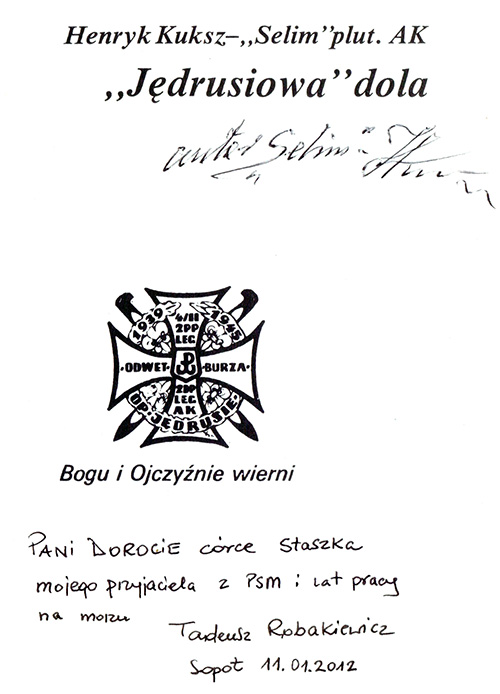 Henryk Kuksz–„Selim” plut. AK
„Jędrusiowa” dola
autor „Selim”
1939
1945
4/II
2PP
LEG
·ODWET·
BURZA·
2DP
LEG
AK
OP. JĘDRUSIE
Bogu i Ojczyźnie wierni
PANI DOROCIE córce Staszka
mojego przyjaciela z PSM i lat pracy
na morzu
Tadeusz Robakiewicz
Sopot 11.01.2012